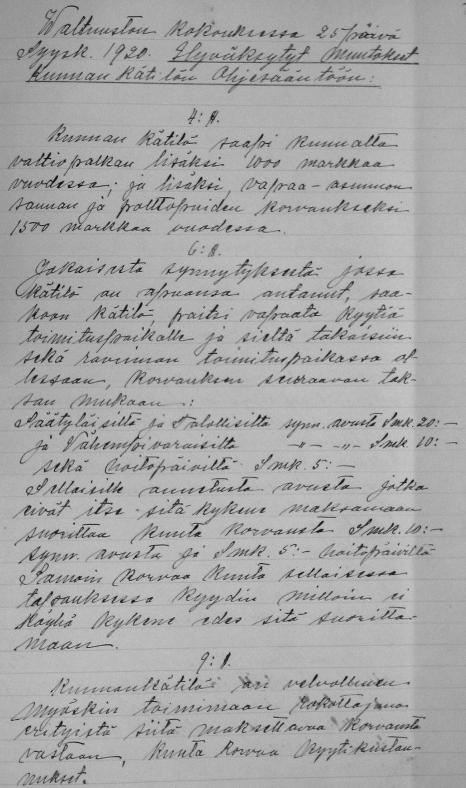 Waltuuston kokouksessa 25 päivä
Syysk. 1920. Hyväksytyt Muutokset
Kunnan Kätilön Ohjesääntöön:
4: §.
Kunnan Kätilö saapi kunnalta
valtiopalkan lisäksi 1000 markkaa
vuodessa; ja lisäksi, vapaa-asunnon
saunan ja polttopuiden korvaukseksi
1500 markkaa vuodessa.
6: §.
Jokaisesta synnytyksestä jossa
kätilö on apuansa antanut, saa-
koon kätilö, paitsi vapaata kyytiä
toimituspaikalle ja sieltä takaisin
sekä ravinnon toimituspaikassa ol
lessaan, korvauksen seuraavan tak-
san mukaan:
Säätyläisiltä ja Talollisilta synn. avusta Smk. 20:-
ja Vähempivaraisilta -"- -"- Smk. 10:-
sekä hoitopäiviltä Smk. 5:-
Sellaisille annetusta avusta jotka
eivät itse sitä kykene maksamaan
suorittaa kunta korvausta Smk. 10:-
synn. avusta ja Smk. 5:- hoitopäiviltä
Samoin korvaa kunta sellaisessa
tapauksessa kyydin milloin ei
köyhä kykene edes sitä suoritta-
maan.
9: §.
Kunnankätilö on velvollinen
myöskin toimimaan rokottajana
erityistä siitä maksettavaa korvausta
vastaan, kunta korvaa kyytikustan-
nukset.